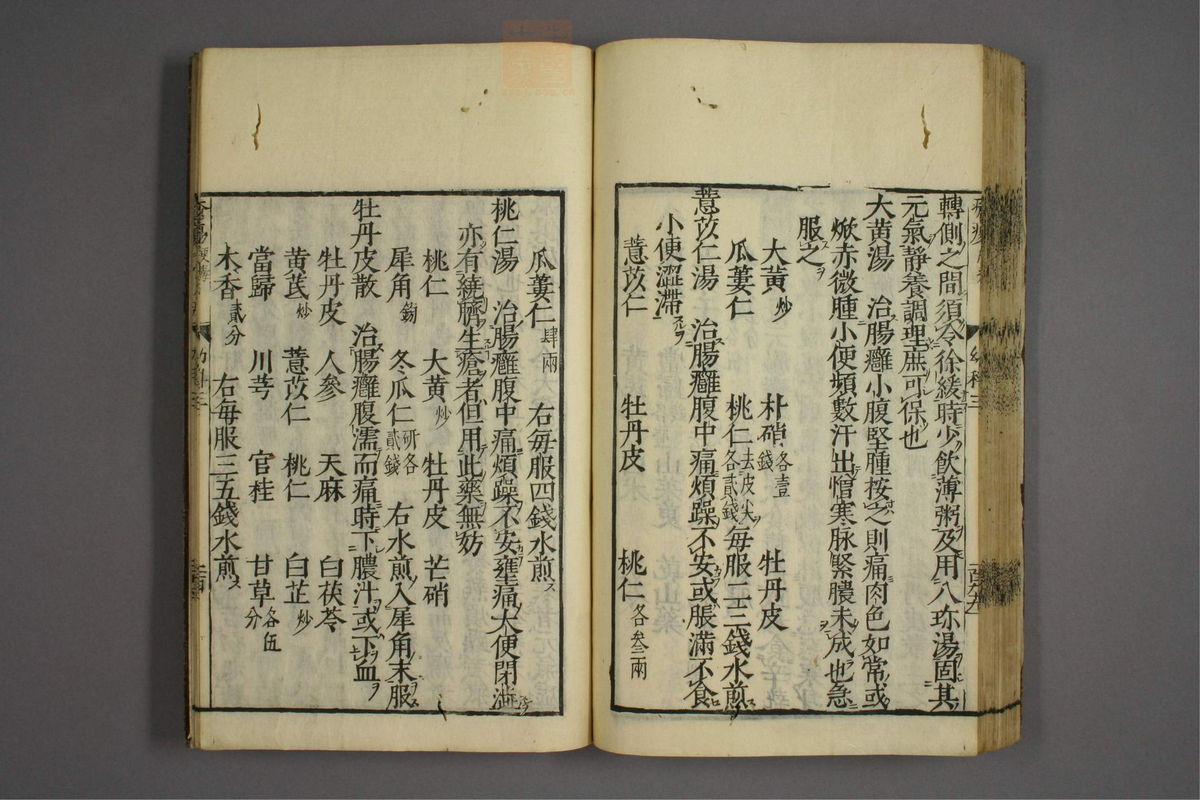 轉側之間須令徐緩時少飲薄粥及用八珍湯固其
元氣靜養調理庶可保也
大黄湯　治腸癰小腹堅腫按之則痛肉色如常或
焮赤微腫小便頻數汗出憎寒脉緊膿未成也急
服之
大黄炒　朴硝各壹錢　牡丹皮
瓜蔞仁　桃仁去皮尖各貳錢　每服二三錢水煎
薏苡仁湯　治腸癰腹中痛煩躁不安或脹滿不食
小便澀滯
薏苡仁　牡丹皮　桃仁各叁兩
瓜蔞仁肆兩　右每服四錢水煎
桃仁湯　治腸癰腹中痛煩躁不安壅痛大便閉澁
亦有繞臍生瘡者但用此藥無妨
桃仁　大黄炒　牡丹皮　芒硝
犀角鎊　冬瓜仁研各貳錢　右水煎入犀角末服
牡丹皮散　治腸癰腹濡而痛時下膿汁或下血
牡丹皮　人參　天麻　白茯苓
黄芪炒　薏苡仁　桃仁　白芷炒
當歸　川芎　官桂　甘草各伍分
木香貳分　右每服三五錢水煎